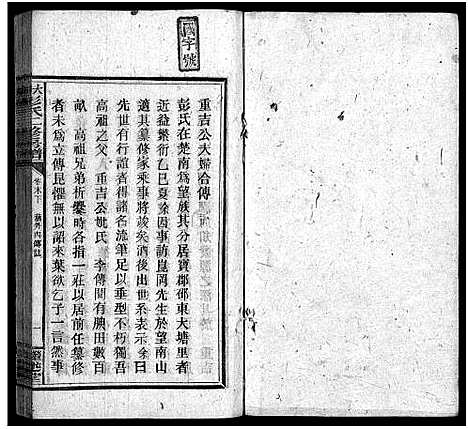 國字號
重吉公夫婦合傳
彭氏在楚南為望族其分居寶郡邵東大塘里者
近益繁衍乙巳夏余因事訪崑岡先生於望南山
適其纂修家乘事將竣矣酒後出世系表示余曰
先世有潛行者得諸名流筆足以垂型不朽獨吾
高祖之父重吉公妣氏李傳間有腴田數百
畝高祖兄弟析爨時各指一莊以居前任纂修
者未為立傳昆懼無以詔來葉欲乞子一言然事
彭氏二修房譜
卷末下